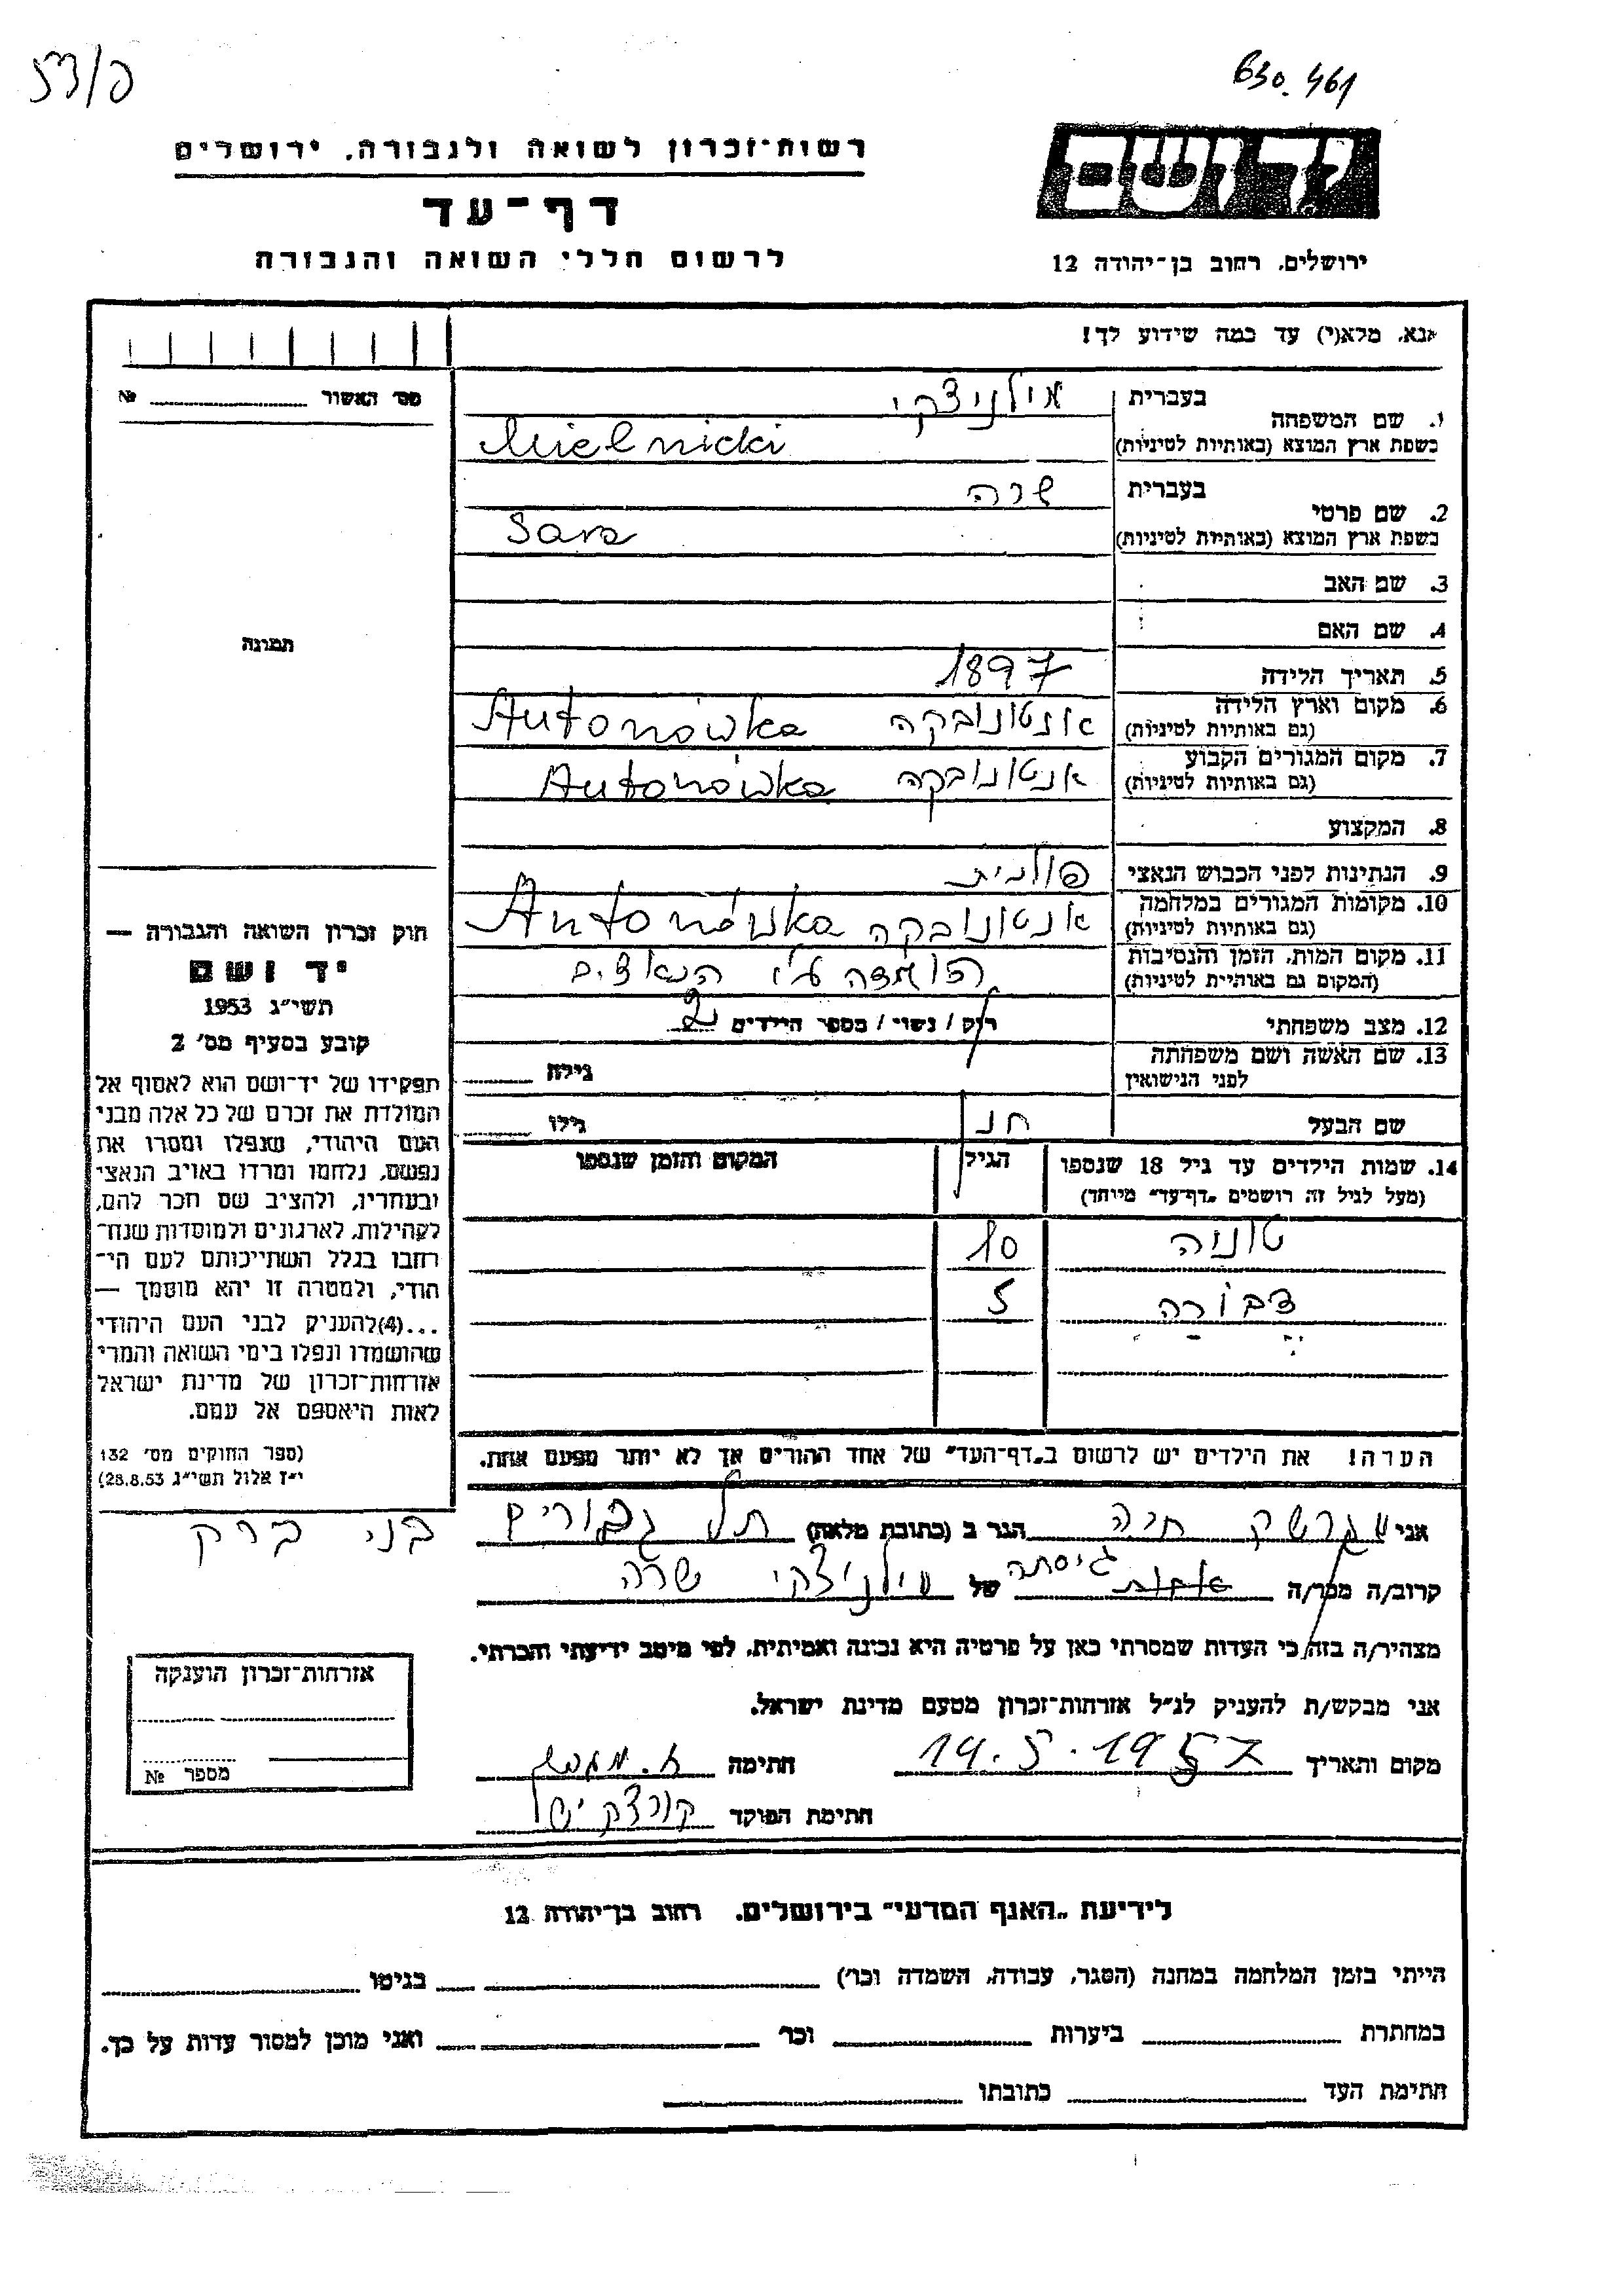 פ/53
630.461
יד ושם
ירושלים, רחוב בן־יהודה 12
רשות־זכרון לשואה ולגבורה, ירושלים
דף־עד
לרשום חללי השואה והגבורה
אנא, מלא(י) עד כמה שידוע לך!
מס׳ האשור № 
1. שם המשפחה
בעברית מילניצקי
בשפת ארץ המוצא (באותיות לטיניות) Mielnicki
2. שם פרטי
בעברית שרה
בשפת ארץ המוצא (באותיות לטיניות) Sara
3. שם האב
4. שם האם
5. תאריך הלידה 1897
6. מקום וארץ הלידה אנטונובקה Antonówka
(גם באותיות לטיניות)
7. מקום המגורים הקבוע אנטונובקה Antonówka
(גם באותיות לטיניות)
8. המקצוע
9. הנתינות לפני הכבוש הנאצי פולנית
10. מקומות המגורים במלחמה אנטונובקה Antonówka
(גם באותיות לטיניות)
11. מקום המות, הזמן והנסיבות הושמדה ע״י הנאצים
(המקום גם באותיות לטיניות)
12. מצב משפחתי רוק / נשוי / מספר הילדים 2
13. שם האשה ושם משפחתה
לפני הנישואין גילה
שם הבעל גילו
14. שמות הילדים עד גיל 18 שנספו הגיל המקום והזמן שנספו
(מעל לגיל זה רושמים „דף־עד״ מיוחד)
טוניה 10
דבורה 5
הערה! את הילדים יש לרשום ב„דף־העד״ של אחד ההורים אך לא יותר מפעם אחת.
תמונה
חוק זכרון השואה והגבורה —
יד ושם
תשי״ג 1953
קובע בסעיף מס׳ 2
תפקידו של יד־ושם הוא לאסוף אל
המולדת את זכרם של כל אלה מבני
העם היהודי, שנפלו ומסרו את
נפשם, נלחמו ומרדו באויב הנאצי
ובעוזריו, ולהציב שם וזכר להם,
לקהילות, לארגונים ולמוסדות שנח־
רבו בגלל השתייכותם לעם הי־
הודי, ולמטרה זו יהא מוסמך —
...(4) להעניק לבני העם היהודי
שהושמדו ונפלו בימי השואה והמרי
אזרחות־זכרון של מדינת ישראל
לאות היאספם אל עמם.
(ספר החוקים מס׳ 132
י״ז אלול תשי״ג 28.8.53)
אני חיה הגר ב (כתובת מלאה) תל גבורים בני ברק
קרוב/ה מכר/ה אחות גיסתה של מילניצקי שרה
מצהיר/ה בזה כי העדות שמסרתי כאן על פרטיה היא נכונה ואמיתית, לפי מיטב ידיעתי והכרתי.
אני מבקש/ת להעניק לנ״ל אזרחות־זכרון מטעם מדינת ישראל.
מקום ותאריך 19.5.1957 חתימה
חתימת הפוקד
אזרחות־זכרון הוענקה
מספר №
לידיעת „האגף המדעי״ בירושלים, רחוב בן־יהודה 12
הייתי בזמן המלחמה במחנה (הסגר, עבודה, השמדה וכו׳) בגיטו
במחתרת ביערות וכו׳ ואני מוכן למסור עדות על כך.
חתימת העד כתובתו